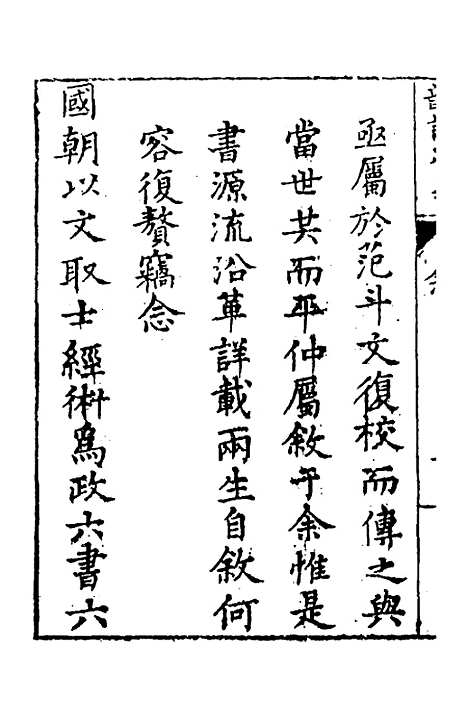 亟屬於范斗文復校而傳之與
當世共而平仲屬敘于余惟是
書源流沿革詳載兩生自敘何
容復贅竊念
國朝以文取士經術爲政六書六